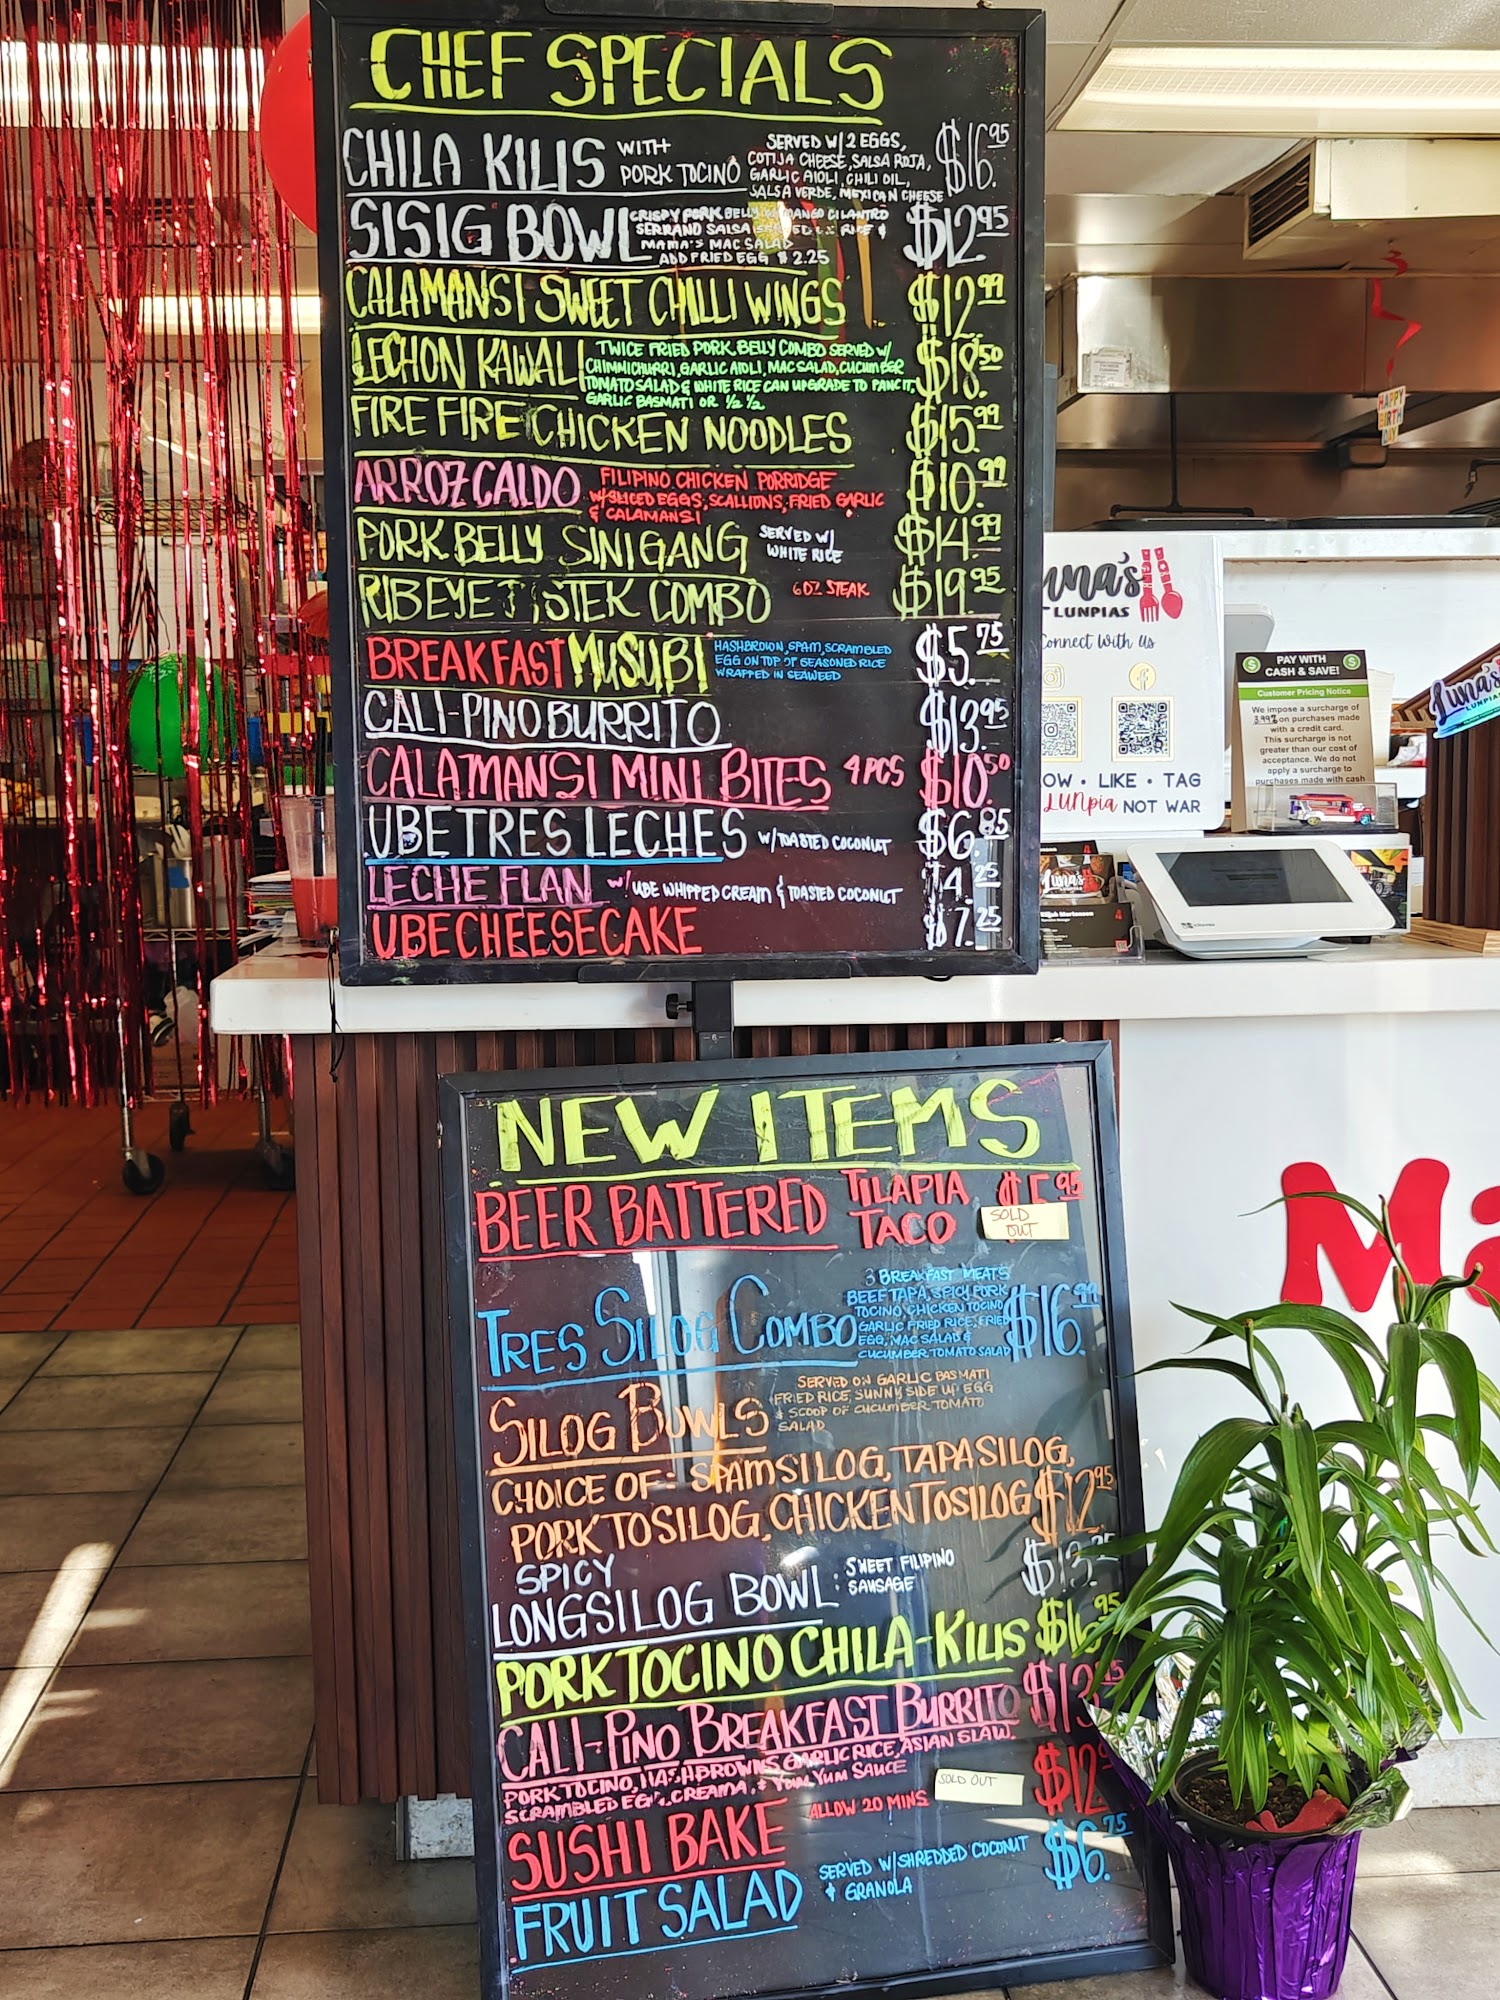 CHEF SPECIALS
CHILA KILIS WITH PORK TOCINO
SERVED W/ 2 EGGS,
COTIJA CHEESE, SALSA ROJA,
GARLIC AIOLI, CHILI OIL,
SALSA VERDE, MEXICAN CHEESE
$16.95
SISIG BOWL
CRISPY PORK BELLY MANGO CILANTRO
SERRANO SALSA RICE &
MAMA'S MAC SALAD
ADD FRIED EGG $2.25
$12.95
CALAMANSI SWEET CHILLI WINGS $12.99
LECHON KAWALI
TWICE FRIED PORK BELLY COMBO SERVED W/
CHIMMICHURRI, GARLIC AIOLI, MAC SALAD, CUCUMBER
TOMATO SALAD & WHITE RICE CAN UPGRADE TO PANCIT,
GARLIC BASMATI OR 1/2 1/2
$18.50
FIRE FIRE CHICKEN NOODLES $15.99
ARROZ CALDO
FILIPINO CHICKEN PORRIDGE
W/ SLICED EGGS, SCALLIONS, FRIED GARLIC
& CALAMANSI
$10.99
PORK BELLY SINIGANG
SERVED W/
WHITE RICE
$14.99
RIBEYE TISTEK COMBO 6 OZ STEAK $19.95
BREAKFAST MUSUBI
HASHBROWN, SPAM, SCRAMBLED
EGG ON TOP OF SEASONED RICE
WRAPPED IN SEAWEED
$5.75
CALI-PINO BURRITO $13.95
CALAMANSI MINI BITES 4 PCS $10.50
UBE TRES LECHES W/ TOASTED COCONUT $6.85
LECHE FLAN W/ UBE WHIPPED CREAM & TOASTED COCONUT $4.25
UBE CHEESECAKE $7.25
una's
LUNPIAS
Connect With Us
OW • LIKE • TAG
LUNpia NOT WAR
PAY WITH
CASH & SAVE!
Customer Pricing Notice
We impose a surcharge of
3.99% on purchases made
with a credit card.
This surcharge is not
greater than our cost of
acceptance. We do not
apply a surcharge to
purchases made with cash
Luna's
LUNPIAS
HAPPY
BIRTH
DAY
Luna's
Elijah Mortensen
NEW ITEMS
BEER BATTERED TILAPIA TACO .95
SOLD
OUT
TRES SILOG COMBO
3 BREAKFAST MEATS
BEEF TAPA, SPICY PORK
TOCINO, CHICKEN TOCINO
GARLIC FRIED RICE, FRIED
EGG, MAC SALAD &
CUCUMBER TOMATO SALAD
$16.99
SILOG BOWLS
SERVED ON GARLIC BASMATI
FRIED RICE, SUNNY SIDE UP EGG
& SCOOP OF CUCUMBER TOMATO
SALAD
CHOICE OF: SPAMSILOG, TAPASILOG,
PORK TOSILOG, CHICKEN TOSILOG $12.95
SPICY
LONGSILOG BOWL: SWEET FILIPINO
SAUSAGE
$13.
PORK TOCINO CHILA-KILIS $16.95
CALI-PINO BREAKFAST BURRITO $13.
PORK TOCINO, HASHBROWNS, GARLIC RICE, ASIAN SLAW,
SCRAMBLED EGG, CREAMA, & YUM YUM SAUCE
SUSHI BAKE ALLOW 20 MINS
SOLD OUT
$12.
FRUIT SALAD
SERVED W/ SHREDDED COCONUT
& GRANOLA
$6.75